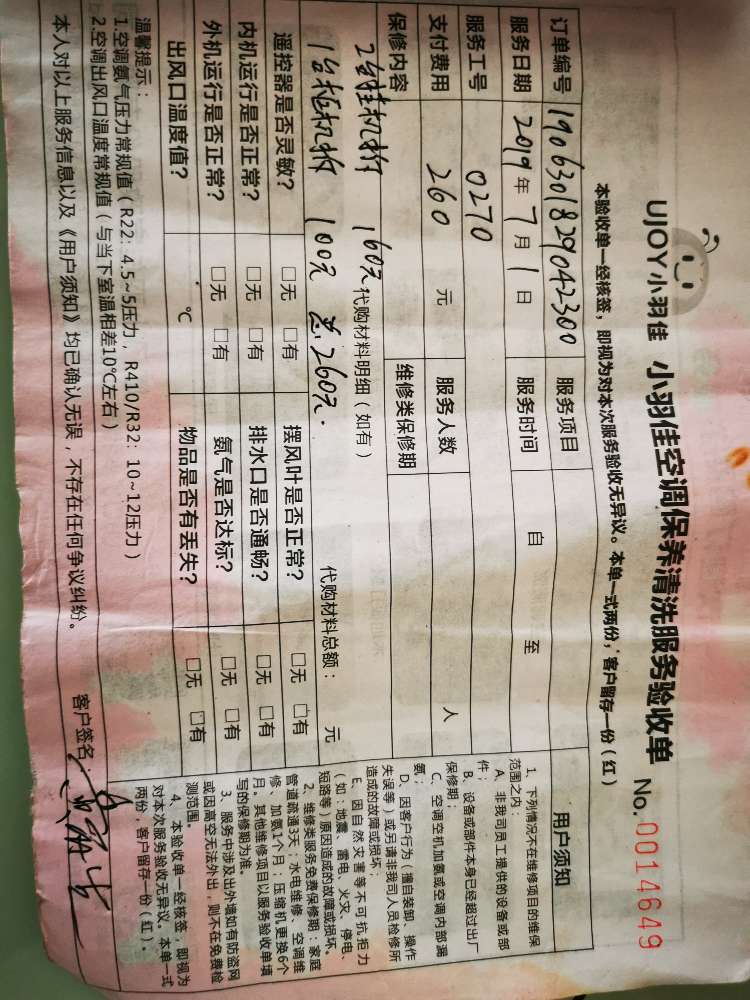 UJOY小羽佳 小羽佳空调保养清洗服务验收单 No. 0014649
本验收单一经核签，即视为对本次服务验收无异议。本单一式两份，客户留存一份（红）
订单编号 1906301829042300 服务项目
服务日期 2019年7月1日 服务时间 自 至
服务工号 0270
支付费用 260 元 服务人数 人
保修内容 维修类保修期
代购材料明细（如有）
2台挂机拆 160元
1台柜机拆 100元 总260元.
代购材料总额： 元
遥控器是否灵敏？ □无 □有 摆风叶是否正常？ □无 □有
内机运行是否正常？ □无 □有 排水口是否通畅？ □无 □有
外机运行是否正常？ □无 □有 氨气是否达标？ □无 □有
出风口温度值？ ℃ 物品是否有丢失？ □无 □有
温馨提示：
1.空调氨气压力常规值（R22：4.5~5压力，R410/R32：10~12压力）
2.空调出风口温度常规值（与当下室温相差10℃左右）
本人对以上服务信息以及《用户须知》均已确认无误，不存在任何争议纠纷。
客户签名：
用户须知
1、下列情况不在维修项目的维保
范围之内：
A、非我司员工提供的设备或部
件；
B、设备或部件本身已经超过出厂
保修期；
C、空调空机加氨或空调内部漏
氨；
D、因客户行为（擅自装卸、操作
失误等）或另请非我司人员检修所
造成的故障或损坏；
E、因自然灾害等不可抗拒力
（如：地震、雷电、火灾、停电、
短路等）原因造成的故障或损坏。
2、维修类服务免费保修期：家庭
管道疏通3天；水电维修、空调维
修、加氨1个月；压缩机更换6个
月。其他维修项目以服务验收单填
写的保修期为准。
3、服务中涉及出外墙如有防盗网
或因高空无法外出，则不在免费检
测范围。
4、本验收单一经核签，即视为
对本次服务验收无异议。本单一式
两份，客户留存一份（红）。